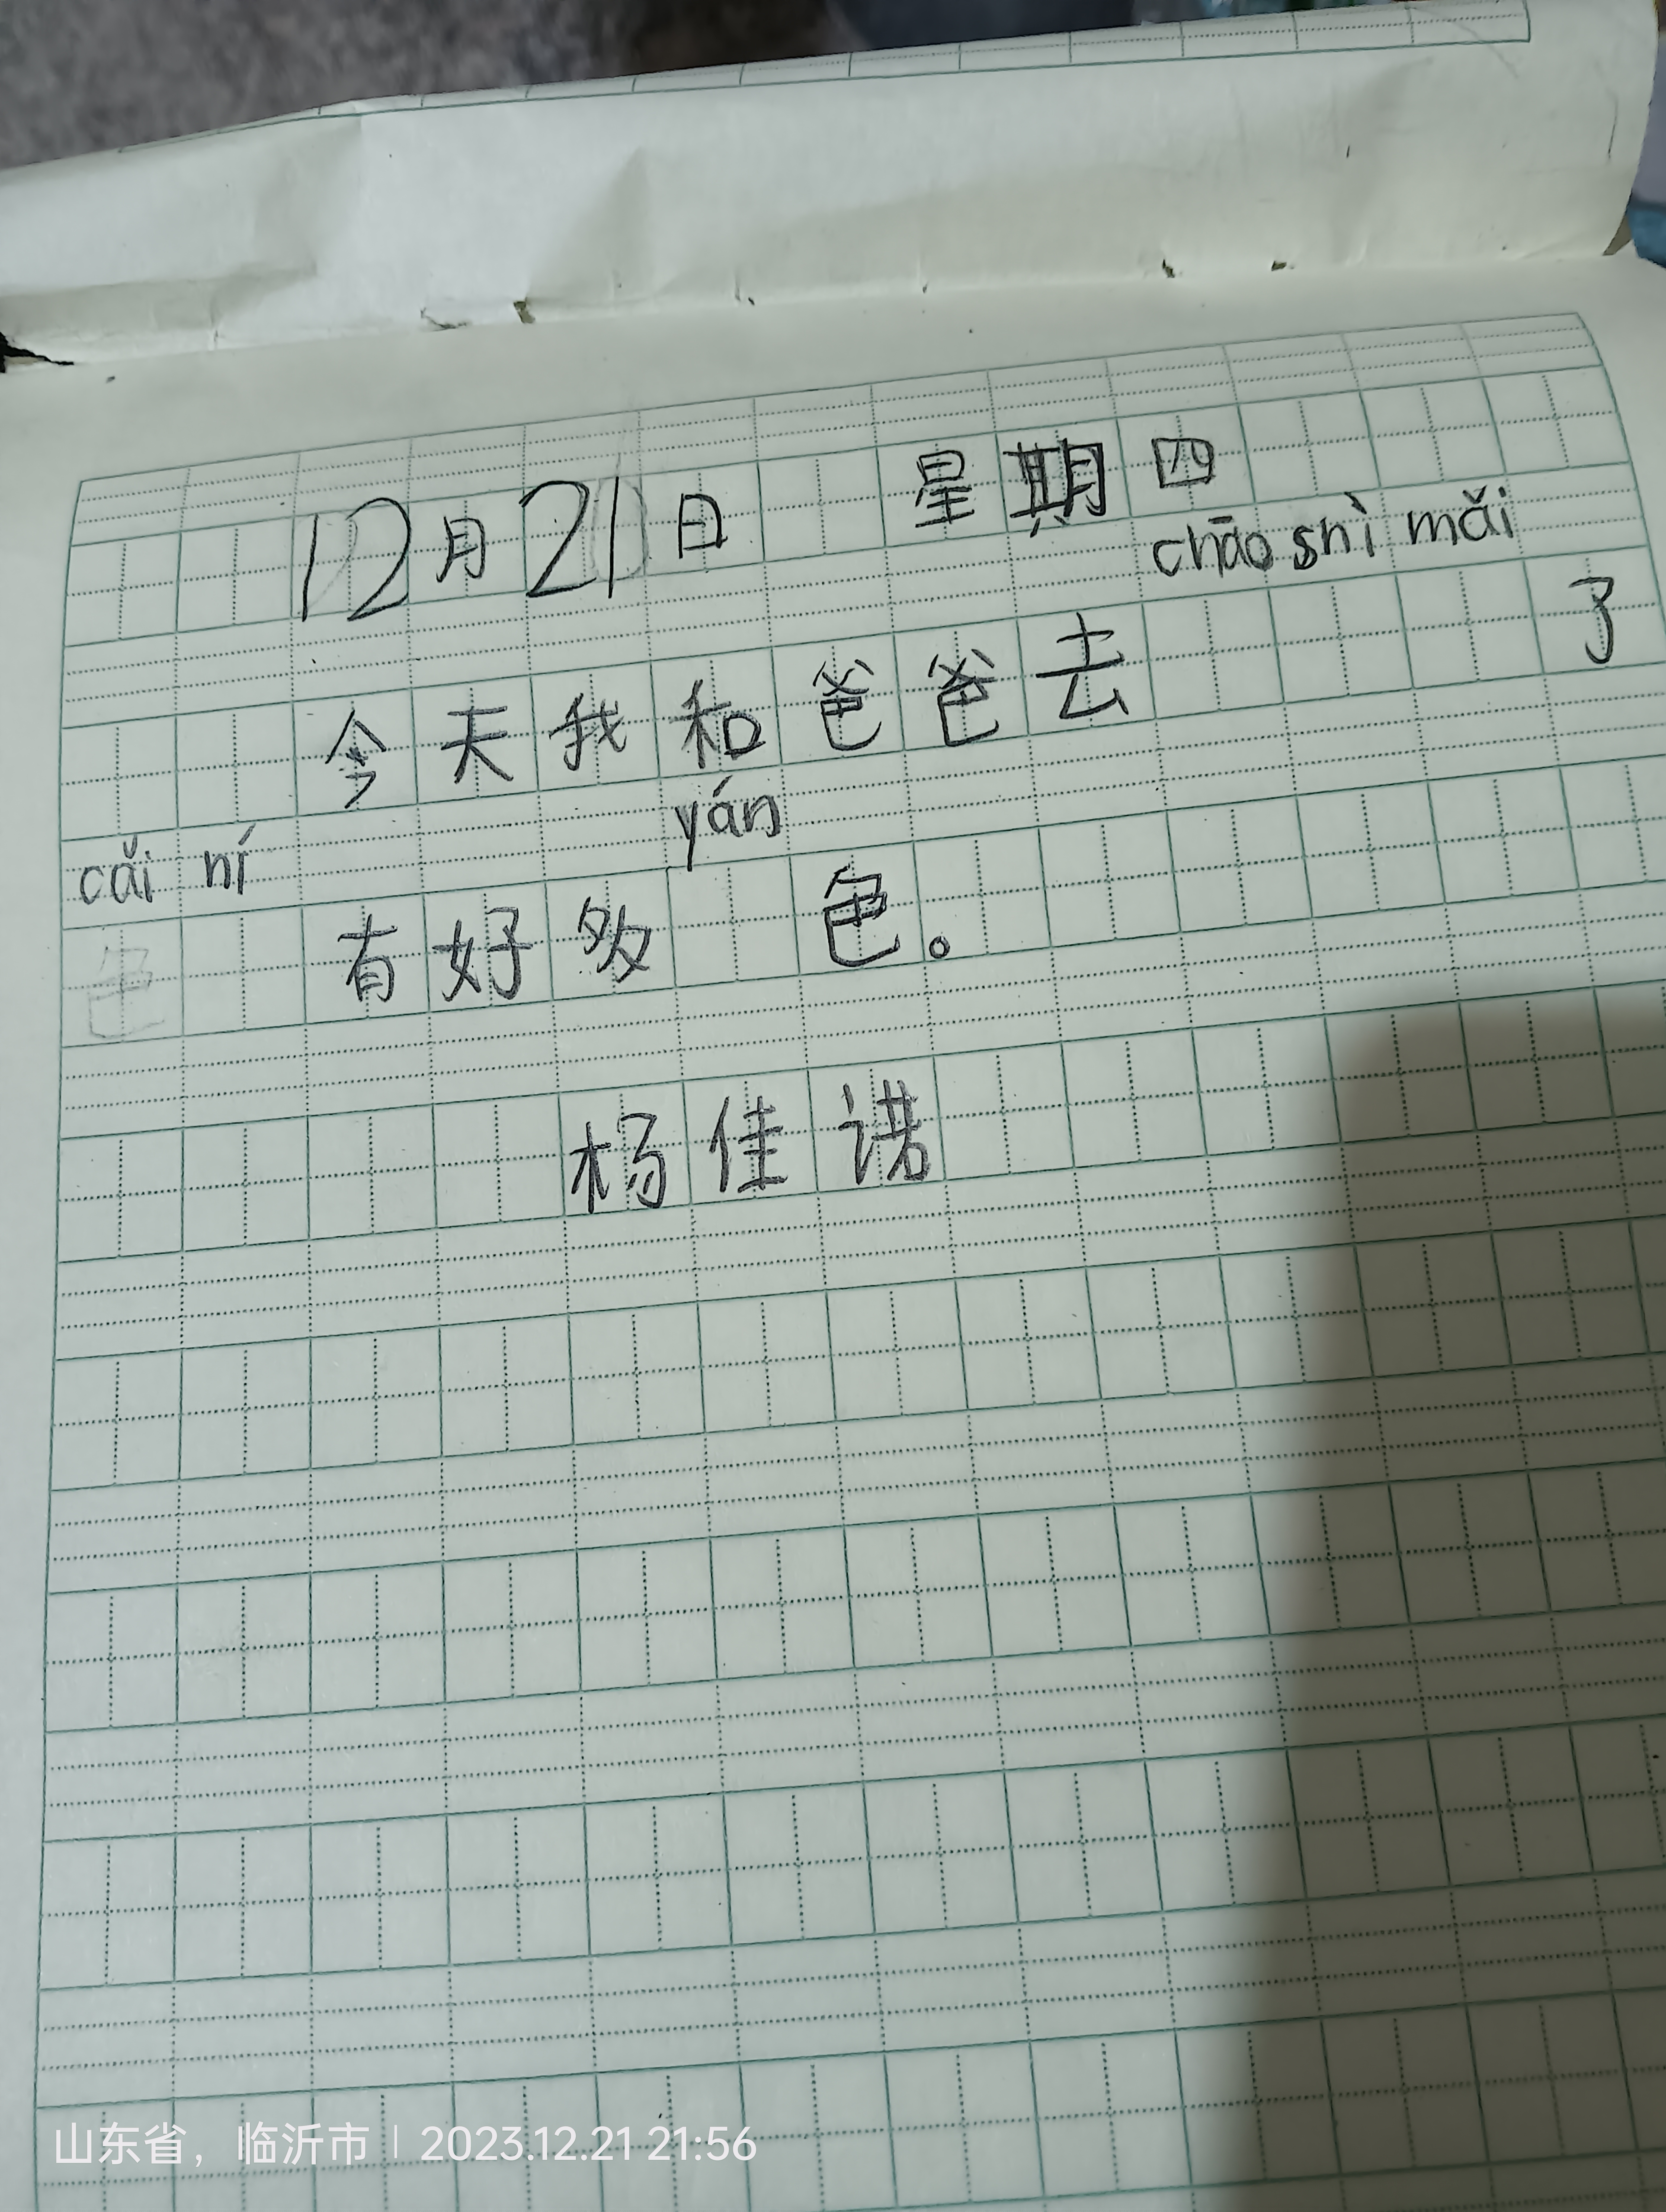 12月21日 星期四
chāo shì mǎi
今天我和爸爸去 了
cǎi ní yán
有好多 色。
杨佳诺
山东省，临沂市 | 2023.12.21 21:56